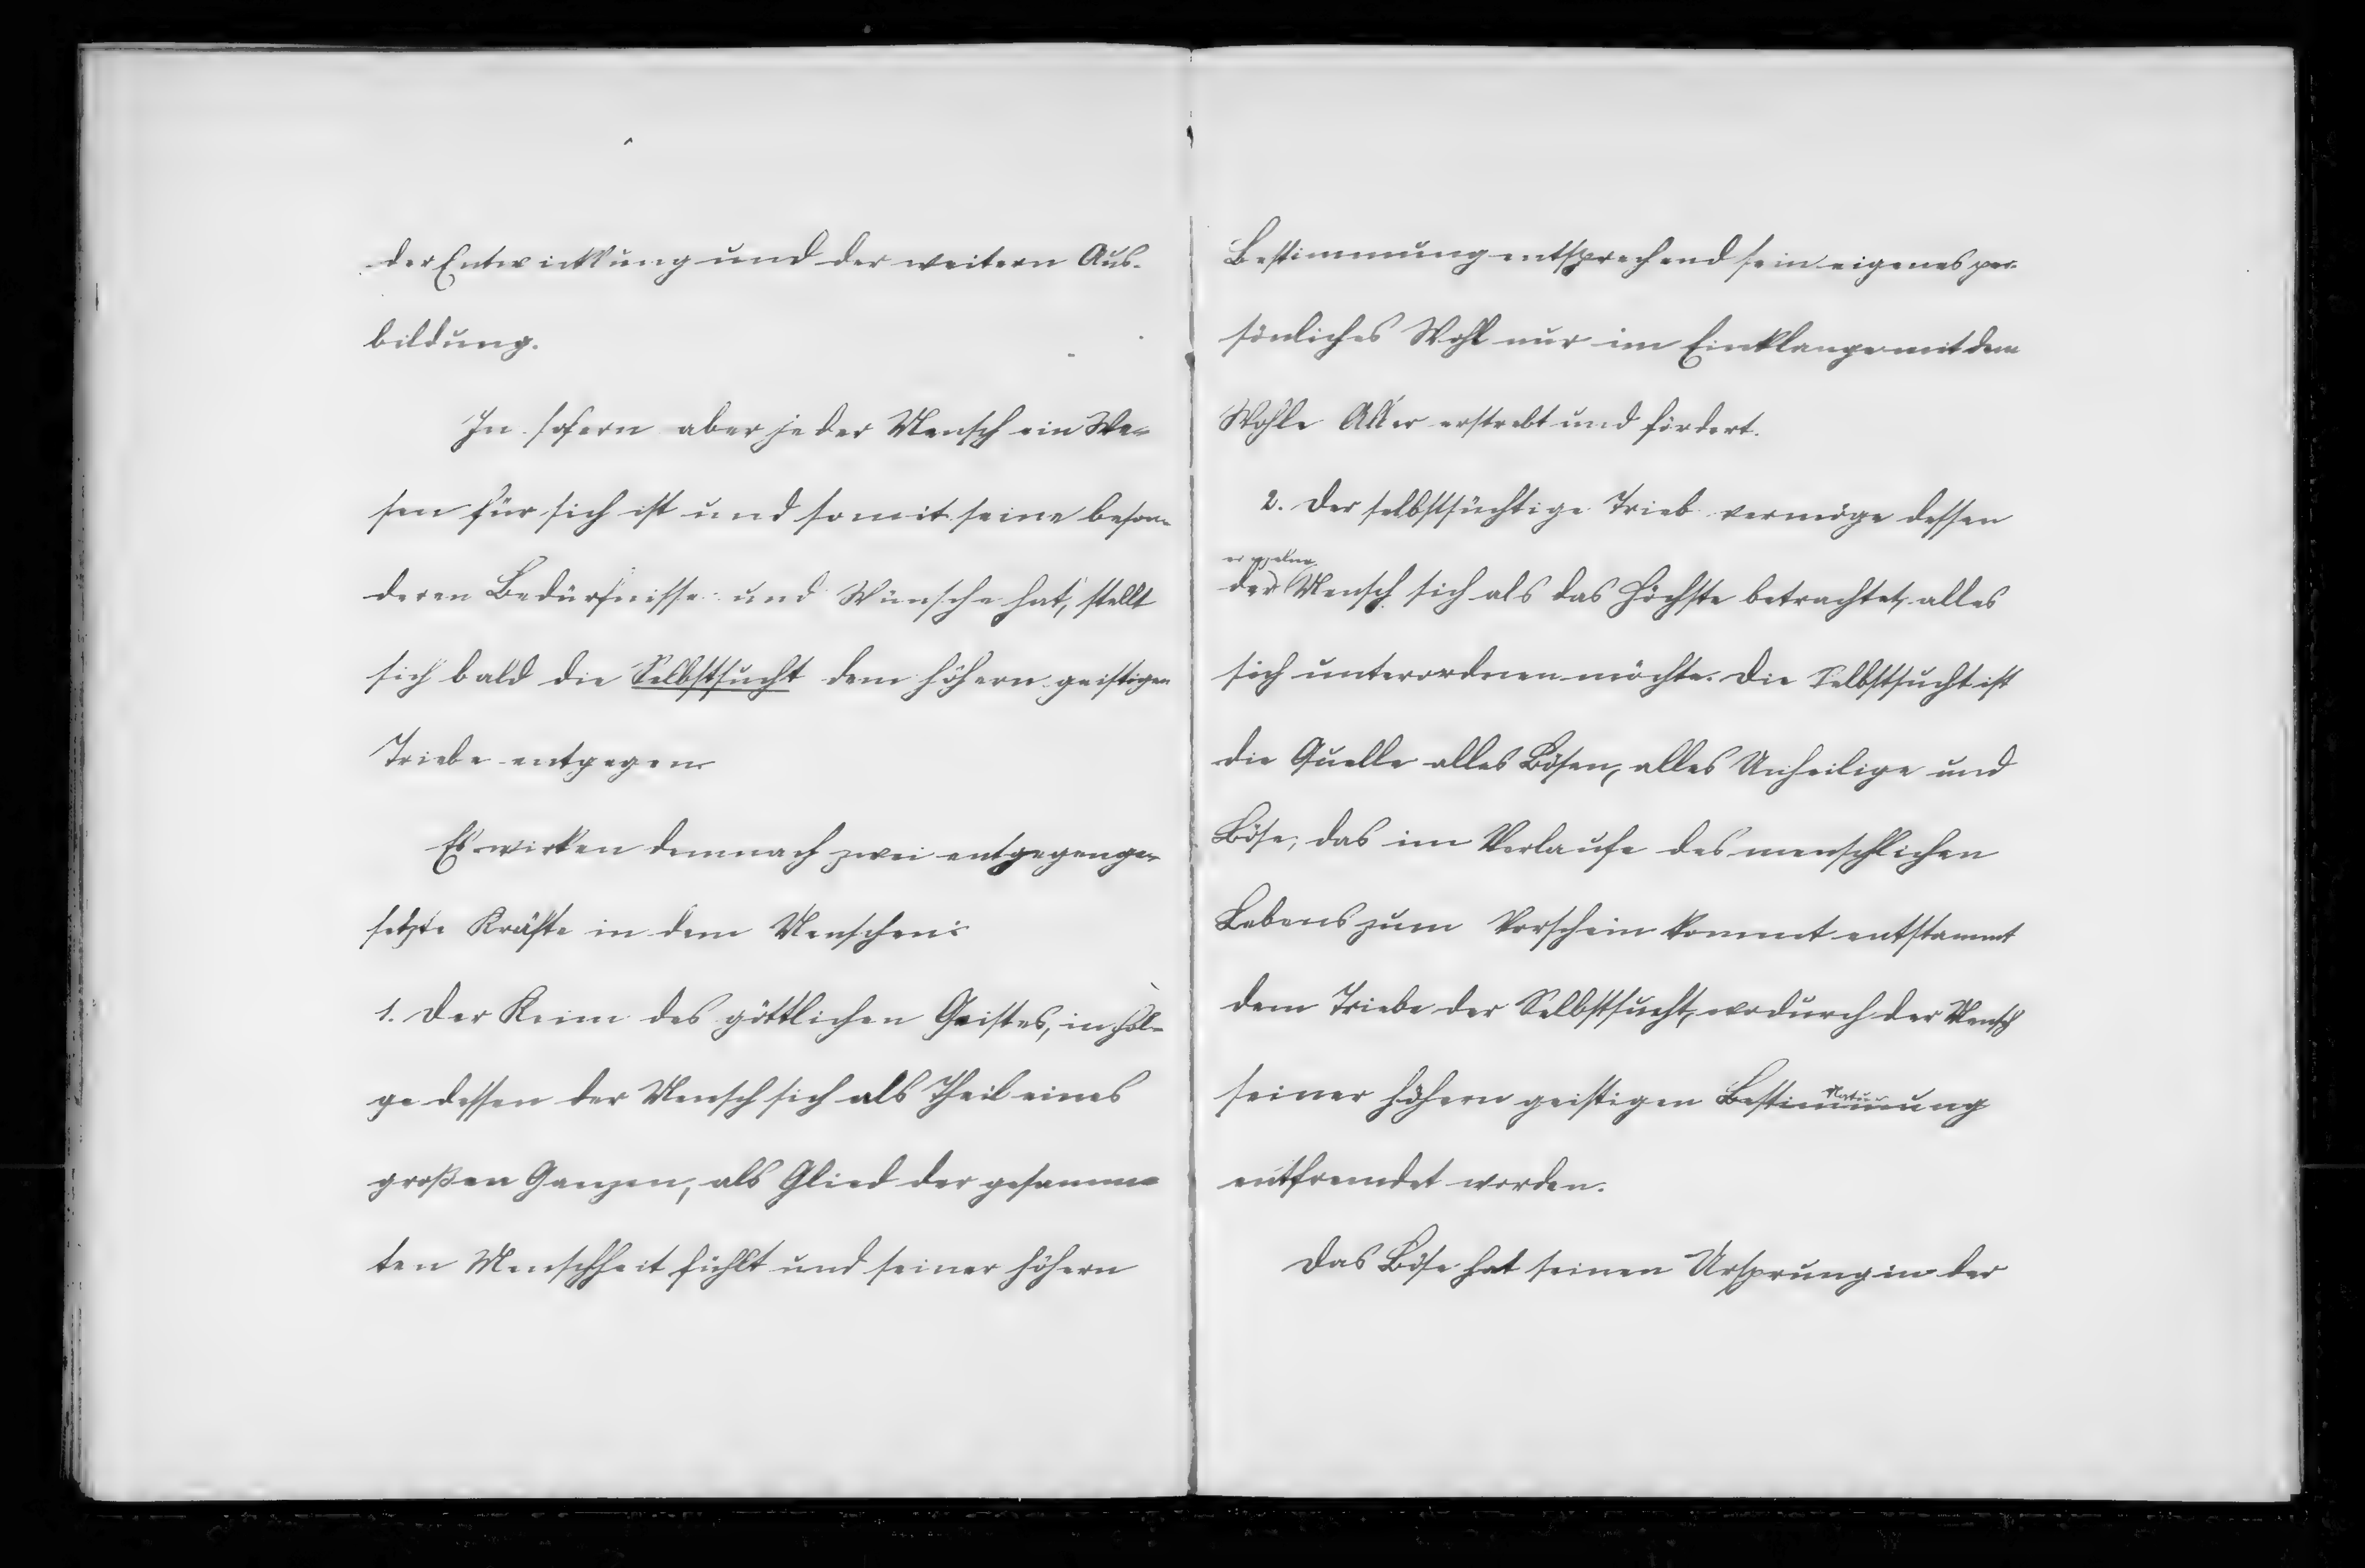 der Entwicklung und der weitern Aus-
bildung.
In sofern aber jeder Mensch ein We-
sen für sich ist und somit seine beson-
deren Bedürfnisse und Wünsche hat, stellt
sich bald die Selbstsucht dem höhern geistigen
Triebe entgegen
Es wirken demnach zwei entgegenge-
setzte Kräfte in dem Menschen:
1. Der Keim des göttlichen Geistes, in Fol-
ge dessen der Mensch sich als Theil eines
großen Ganzen, als Glied der gesamm-
ten Menschheit fühlt und seiner höhern
Bestimmung entsprechend sein eigenes per-
sönliches Wohl nur im Einklange mit dem
Wohle Aller erstrebt und fördert.
2. Der selbstsüchtige Trieb vermöge dessen
der Mensch sich als das Höchste betrachtet, alles
sich unterordnen möchte. Die Selbstsucht ist
die Quelle alles Bösen, alles Unheilige und
Böse, das im Verlaufe des menschlichen
Lebens zum Vorschein kommt entstammt
dem Triebe der Selbstsucht, wodurch der Mensch
Natur
seiner höhern geistigen Bestimmung
entfremdet worden.
Das Böse hat seinen Ursprung in der